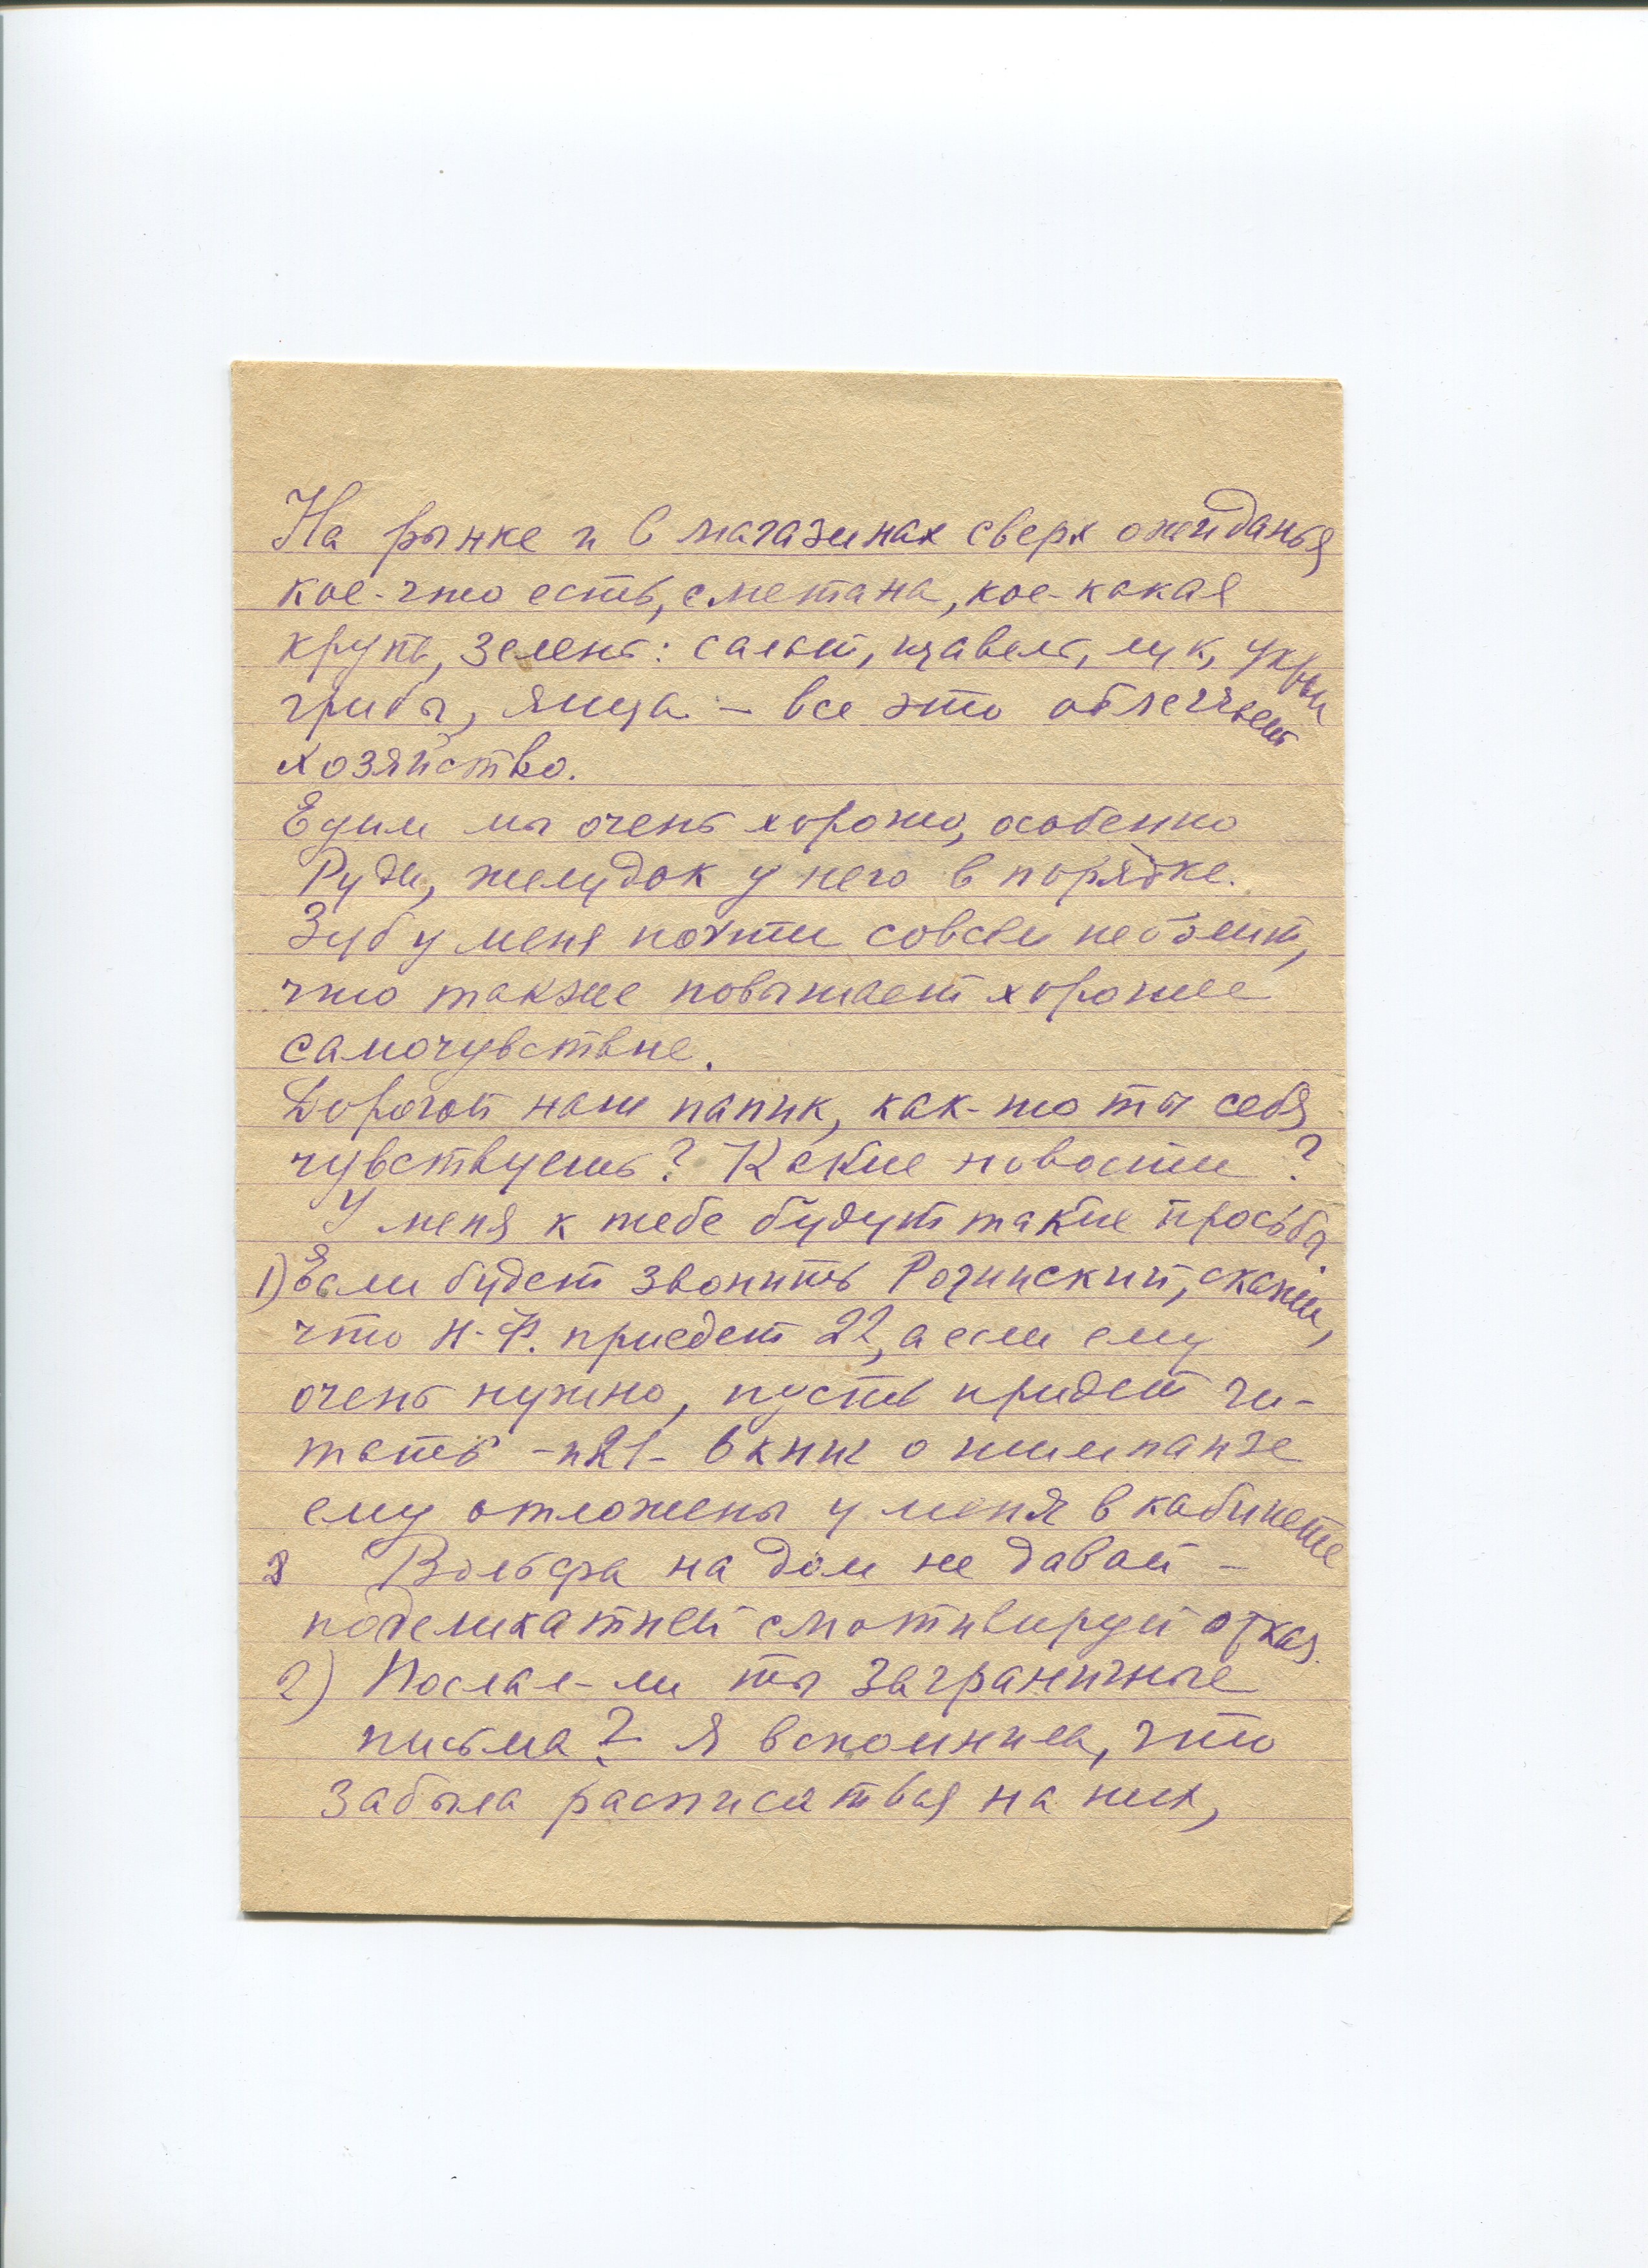 На рынке и в магазинах сверх ожиданья
кое-что есть, сметана, кое-какая
крупа, зелень: салат, щавель, лук, укроп
грибы, яйца – все это облегчает
хозяйство.
Едим мы очень хорошо, особенно
Руди, желудок у него в порядке.
Зуб у меня почти совсем не болит,
что также повышает хорошее
самочувствие.
Дорогой наш папик, как-то ты себя
чувствуешь? Какие новости?
У меня к тебе будут такие просьбы
1) Если будет звонить Рогинский, скажи,
что Н.Ф. приедет 22, а если ему
очень нужно, пусть придет чи-
тать – 21 – 6 книг о шимпанзе
ему отложены у меня в кабинете
Вольфа на дом не давай –
поделикатней смотивируй отказ.
2) Послал-ли ты заграничные
письма? Я вспомнила, что
забыла расписаться на них,